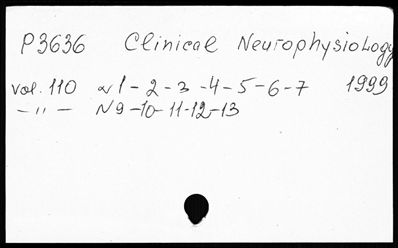 P3636 Clinical Neurophysiology
vol. 110 N1-2-3-4-5-6-7 1999
-"- N9-10-11-12-13